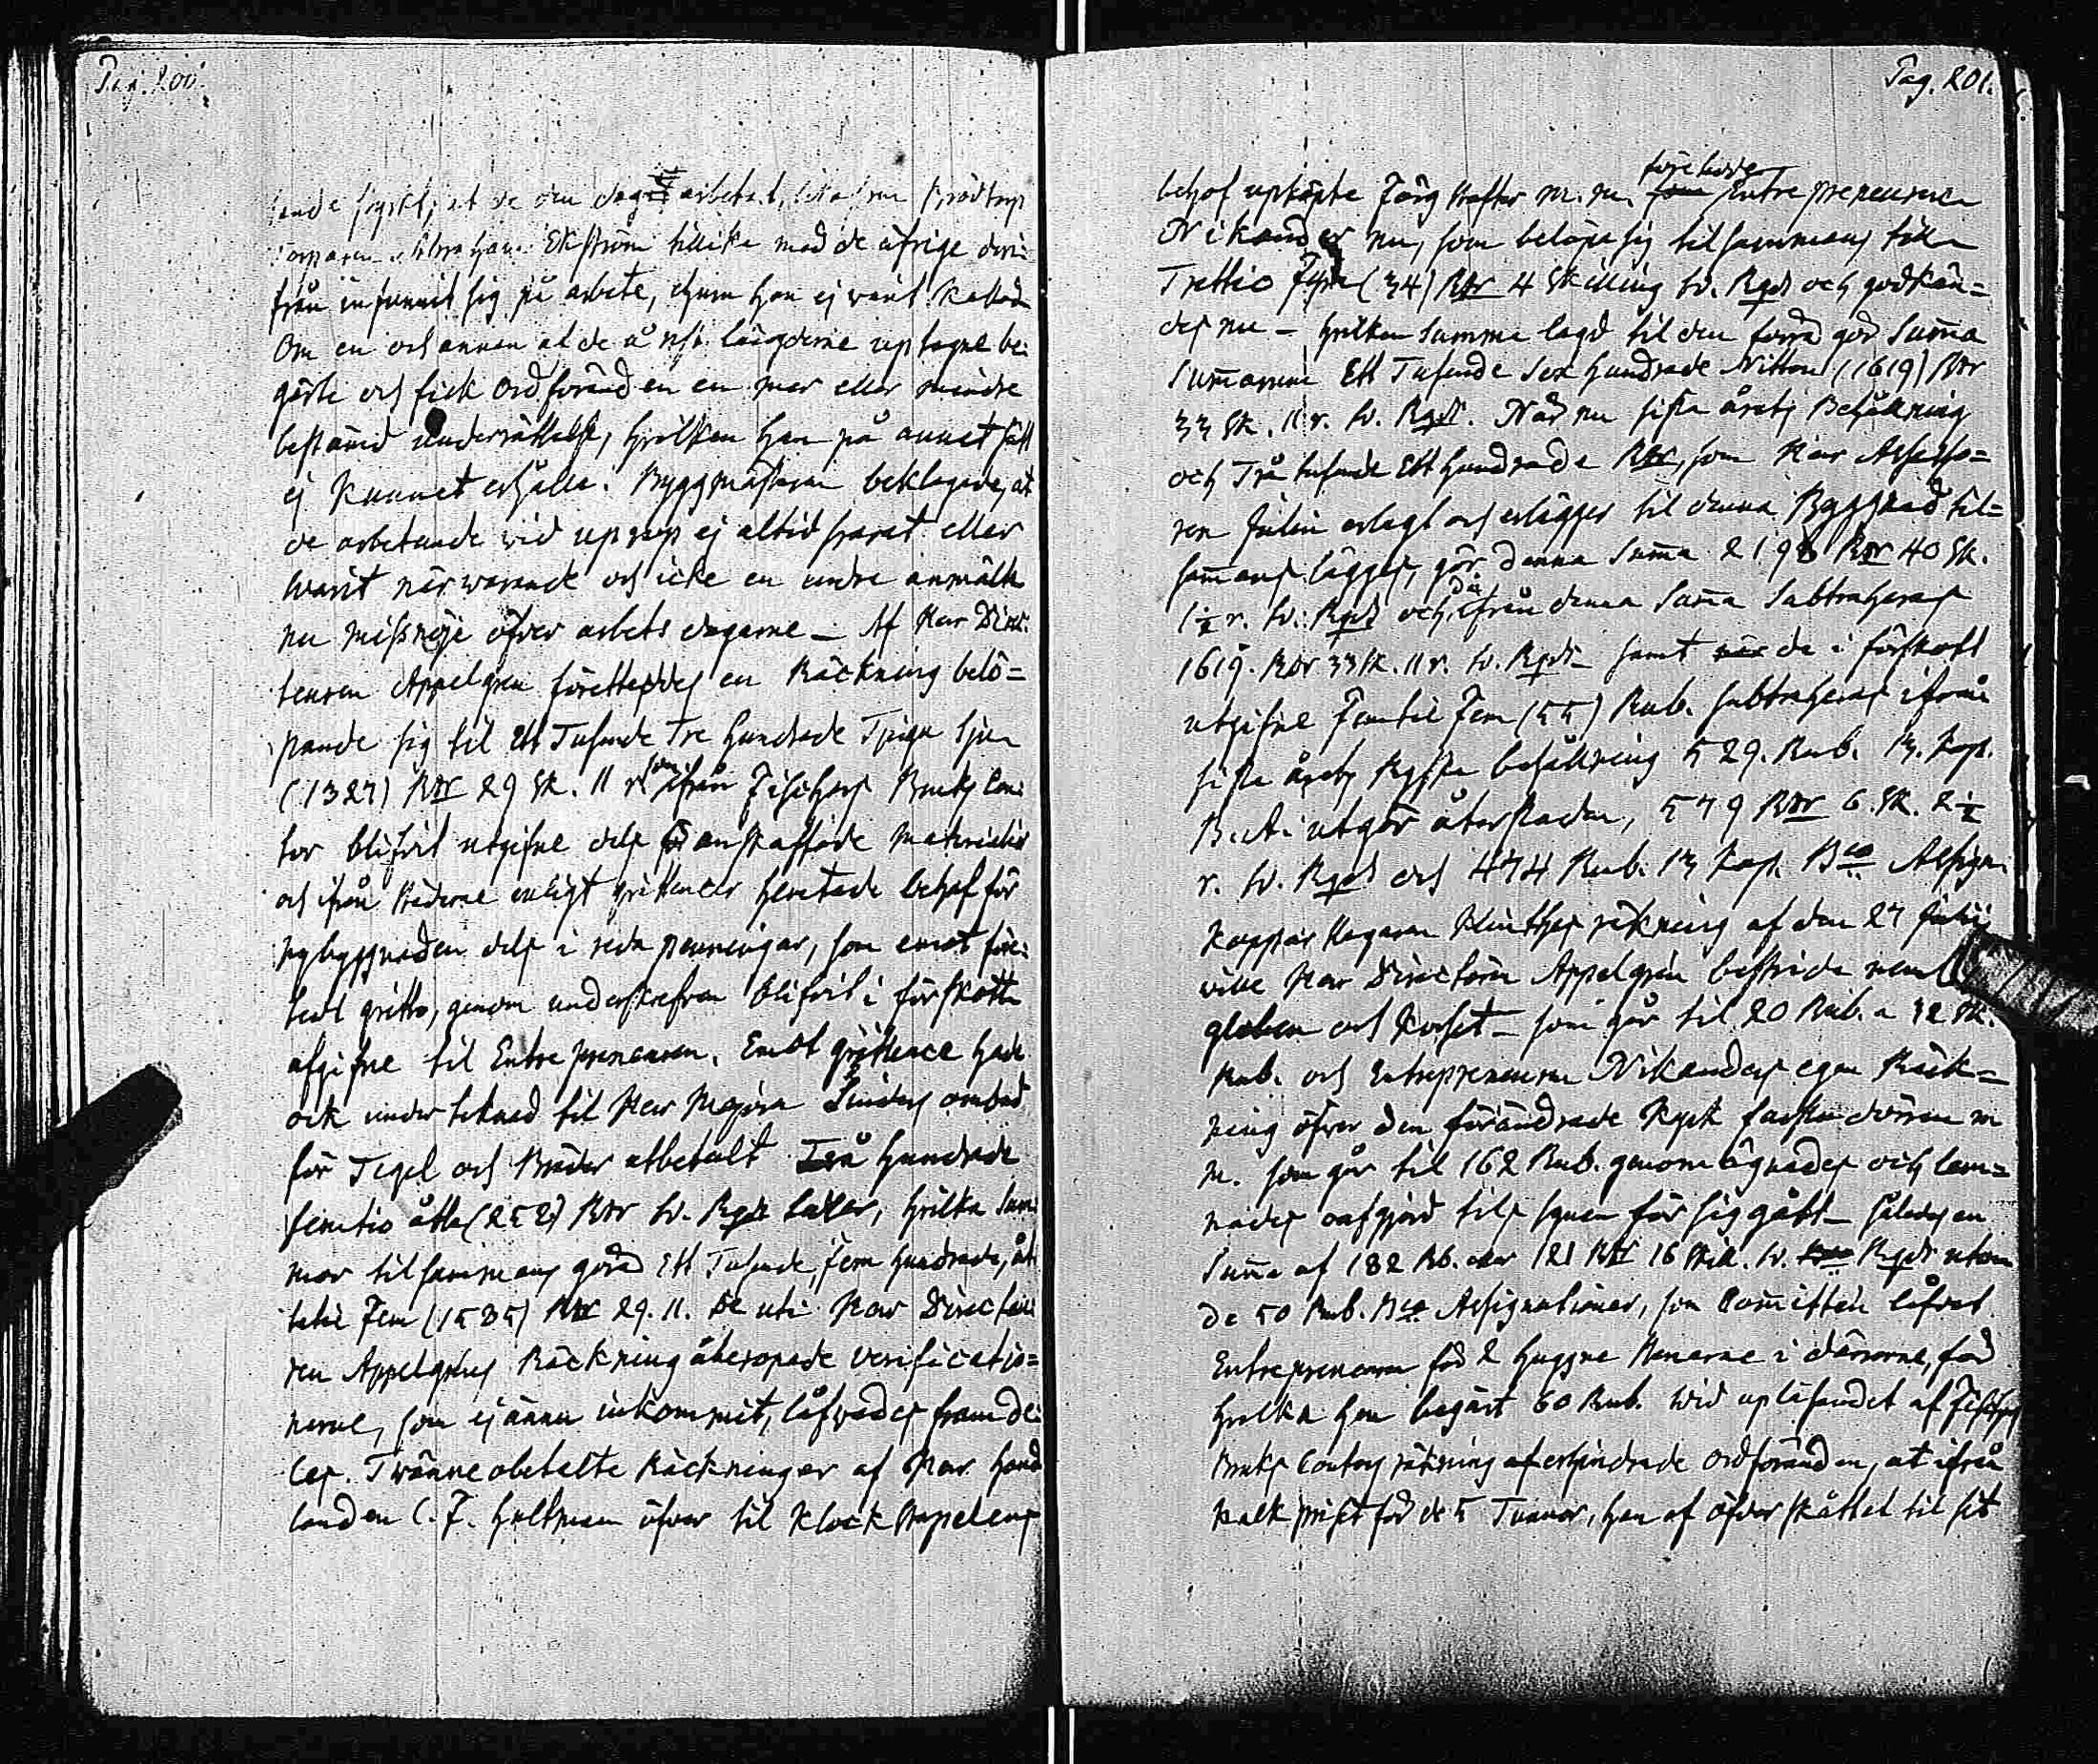 Pag. 200.
de den dag arbetat, såsom
Ekström tillika med de öfrige deri-
från infunnit sig på arbete, ehuru han ej varit kallad
Om en och annan af de å längderne uptagne be-
gärte och fick Ordföranden en mer eller mindre
bestämd underrättelse, hvilken han på annat sätt
ej kunnat erhålla. Byggmästaren beklagade, at
de arbetande vid uprop ej altid svarat eller
varit närvarande och icke en eller andre anmälte
nu missnöje öfver arbets dagarne – Af Herr Direc-
teuren Appelgren företeddes en Räckning belö=
pande sig til Ett Tusende Tre hundrade Tjugu sju
(1327) Rdr 29 sk. 11 r. som ifrån Fiskars Bruks Con-
tor blifvit utgifne dels för anskaffade materialier
och ifrån städerne enligt qvittencer hemtade behof för
nybyggnaden dels i reda penningar, som emot före-
tedt qvitto, genom underskrefven blifvit i förskott
afgifne til Entrepreneuren. Emot qvittence hade
ock undertecknad til Herr Majoren Linders ombud
för Tegel och Bräder utbetalt Två hundrade
femtio åtta (258) Rdr Sv. Rgds sedlar, hvilka sum-
mor tilsammans göra Ett Tusende, fem hundrade, åt-
tatio fem (1585) Rdr 29. 11. De uti Herr Directeu-
ren Appelgrens Räckning åberopade verificatio=
nerne, som ej ännu inkommit, låfvades framde-
les. Twänne obetalte Räckningar af Herr Hand-
landen C. F. Hultman öfver til Klockstapelens
Pag. 201.
behof upköpte Färg stofter m. m. företedde Entrepreneuren
Nikander nu, som belöpa sig tilsammans til
Trettio fyra (34) Rdr 4 skilling Sv. Rgds och godkän=
des nu – hvilken summa lagd til den förra gör Summa
Summarum Ett Tusende Sex hundrade Nitton (1619) Rdr
33 sk. 11 r. Sv. Rgds. När nu sista årets Behållning
och Två tusende Ett hundrade Rdr, som Herr Assesso=
ren Julin erlagt och erlägger til denna Byggnad til=
sammans lägges, gör denna Summa 2198 Rdr 40 sk.
1½ r. Sv. Rgds och då ifrån denna Summa Subtraheras
1619. Rdr 33 sk. 11 r. Sv. Rgds – samt de i förskott
utgifne Femtie Fem (55) Rub. subtraheras ifrån
sista årets Ryska behållning 529. Rub. 13. Kop.
B. A. utgör återstoden, 579 Rdr 6. sk. 2½
r. Sv. Rgds och 474 Rub. 13 Kop. Bco Assign.
Kopparslagaren räkning af den 27 Julii
ville Herr Directören Appelgren bestrida
globen och Korset – som går til 20 Rub. a 32 sk.
Rub. och Entrepreneuren Nikanders egen Räck=
ning öfver den förändrade Kyrk farstu dörren m
m. som går til 162 Rub. genom ögnades och lem=
nades oafgjord tils synen för sig gått – således en
Summa af 182 Rb. eller 121 Rdr 16 skill. Sv. Rgds utom
de 50 Rub. Bco Assignationer, som Comitteén låfvat
Entreprenören för 2 huggne stenarne i dörrarne, för
hvilka han begärt 60 Rub. Vid upläsandet af Fiskars
Bruks Contors räkning af erhindrade ordföranden, at ifrån
kalk priset för de 5 Tunnor, han af öfverskottet til sit